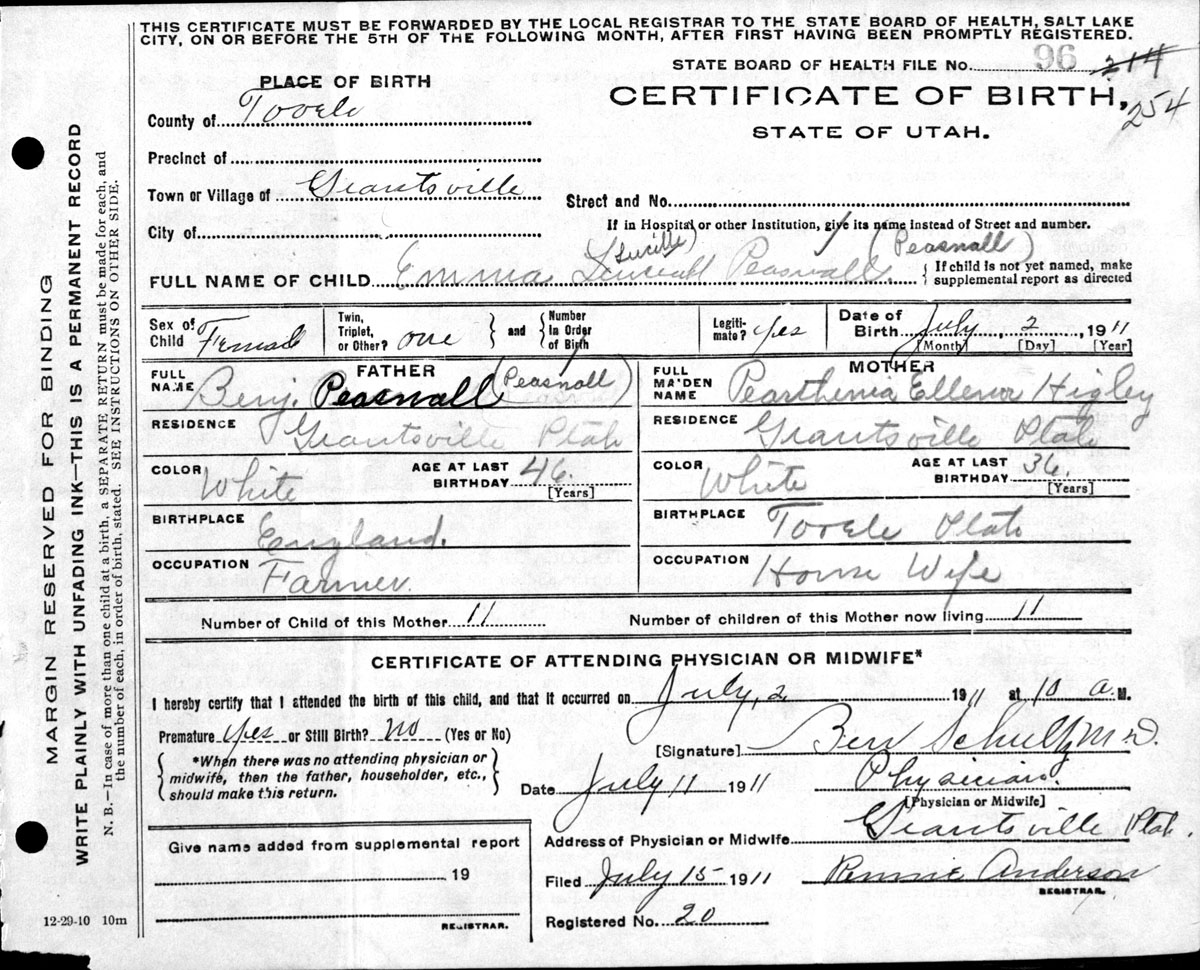 THIS CERTIFICATE MUST BE FORWARDED BY THE LOCAL REGISTRAR TO THE STATE BOARD OF HEALTH, SALT LAKE
CITY, ON OR BEFORE THE 5TH OF THE FOLLOWING MONTH, AFTER FIRST HAVING BEEN PROMPTLY REGISTERED.
STATE BOARD OF HEALTH FILE No. 96 314
254
PLACE OF BIRTH
CERTIFICATE OF BIRTH,
STATE OF UTAH.
County of Tooele
Precinct of
Town or Village of Grantsville
Street and No.
City of
If in Hospital or other Institution, give its name instead of Street and number.
(Lucille) (Peasnall)
FULL NAME OF CHILD Emma Peasnall
{ If child is not yet named, make
supplemental report as directed
Sex of Child Female
Twin, Triplet, or Other? one } and { Number In Order of Birth
Legiti-mate? yes
Date of Birth July 2 1911
[Month] [Day] [Year]
FATHER
FULL NAME Benj. Peasnall (Peasnall)
RESIDENCE Grantsville Utah
COLOR White AGE AT LAST BIRTHDAY 46 [Years]
BIRTHPLACE England.
OCCUPATION Farmer.
MOTHER
FULL MAIDEN NAME Pearthenia Ellena Higley
RESIDENCE Grantsville Utah
COLOR White AGE AT LAST BIRTHDAY 36. [Years]
BIRTHPLACE Tooele Utah
OCCUPATION House Wife
Number of Child of this Mother 11 Number of children of this Mother now living 11
CERTIFICATE OF ATTENDING PHYSICIAN OR MIDWIFE*
I hereby certify that I attended the birth of this child, and that it occurred on July, 2 1911 at 10 a. M.
Premature yes or Still Birth? No (Yes or No)
[Signature] Ben Schultz M.D.
{ *When there was no attending physician or
midwife, then the father, householder, etc.,
should make this return. }
Date July 11 1911 Physician.
[Physician or Midwife]
Address of Physician or Midwife Grantsville Utah.
Filed July 15 1911 Anderson
REGISTRAR.
Registered No. 20
Give name added from supplemental report
19
REGISTRAR.
12-29-10 10m
MARGIN RESERVED FOR BINDING
WRITE PLAINLY WITH UNFADING INK—THIS IS A PERMANENT RECORD
N. B.—In case of more than one child at a birth, a SEPARATE RETURN must be made for each, and
the number of each, in order of birth, stated. SEE INSTRUCTIONS ON OTHER SIDE.